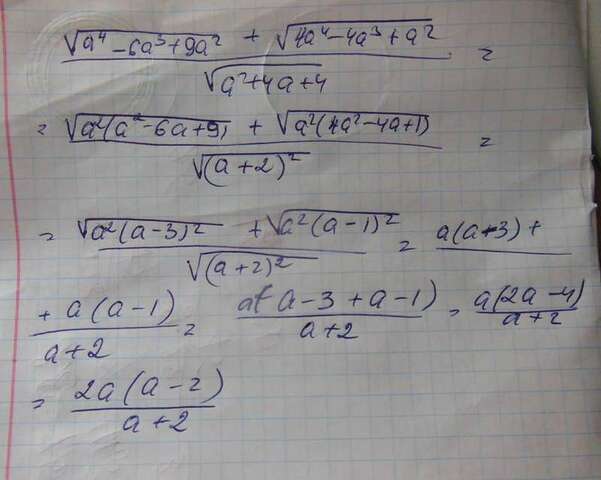 (√(a⁴-6a³+9a²) + √(4a⁴-4a³+a²)) / √(a²+4a+4) =
= (√(a²(a²-6a+9)) + √(a²(4a²-4a+1))) / √((a+2)²) =
= (√(a²(a-3)²) + √(a²(a-1)²)) / √((a+2)²) = a(a-3) +
+ a(a-1) / (a+2) = a(a-3+a-1) / (a+2) = a(2a-4) / (a+2)
= 2a(a-2) / (a+2)